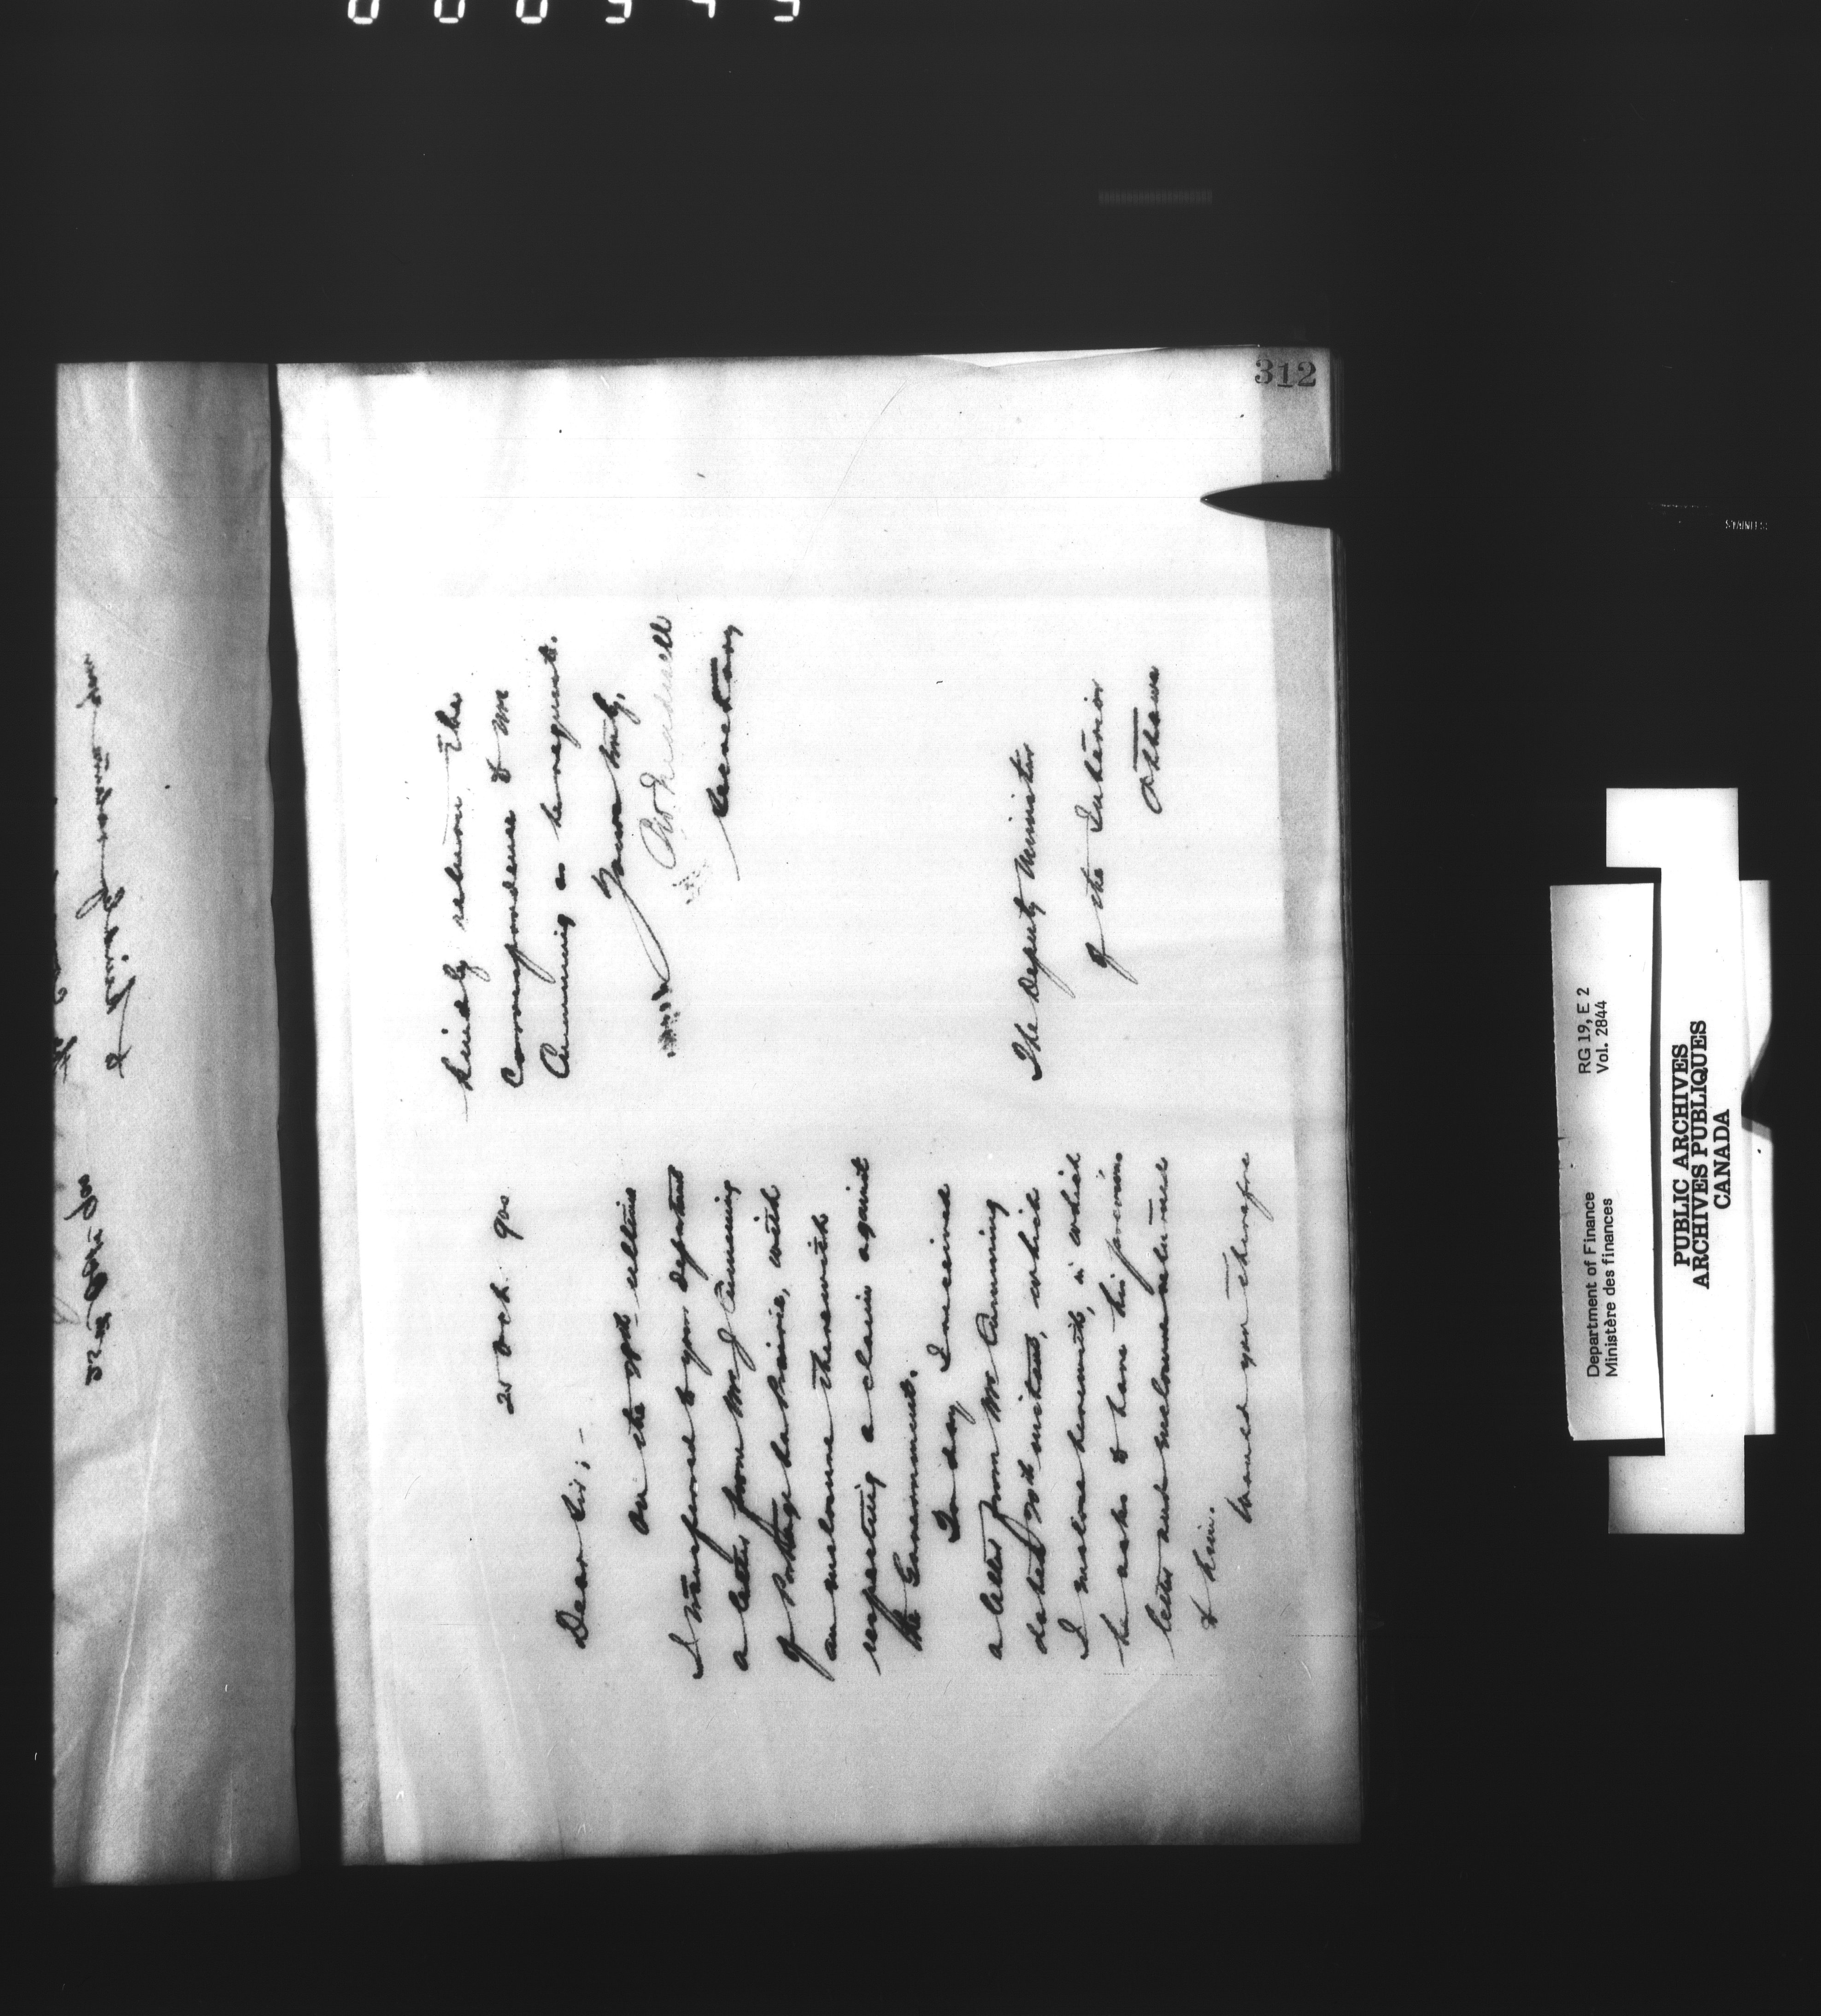 312
25 Oct. 90
Dear Sir;-
On the 28th ultimo
I transferred to your Department
a letter from Mr J Cumming
of Portage La Prairie, with
an enclosure therewith
respecting a claim against
the Government.
To day I received
a letter from Mr Cumming
dated 20th instant, which
I enclose herewith, in which
he asks to have his previous
letter and enclosure returned
to him.
Would you therefore
kindly return the
Correspondence to Mr
Cumming as he requests.
Yours truly,
Secretary
The Deputy Minister
of the Interior
Ottawa
Department of Finance RG 19, E 2
Ministère des finances Vol. 2844
PUBLIC ARCHIVES
ARCHIVES PUBLIQUES
CANADA